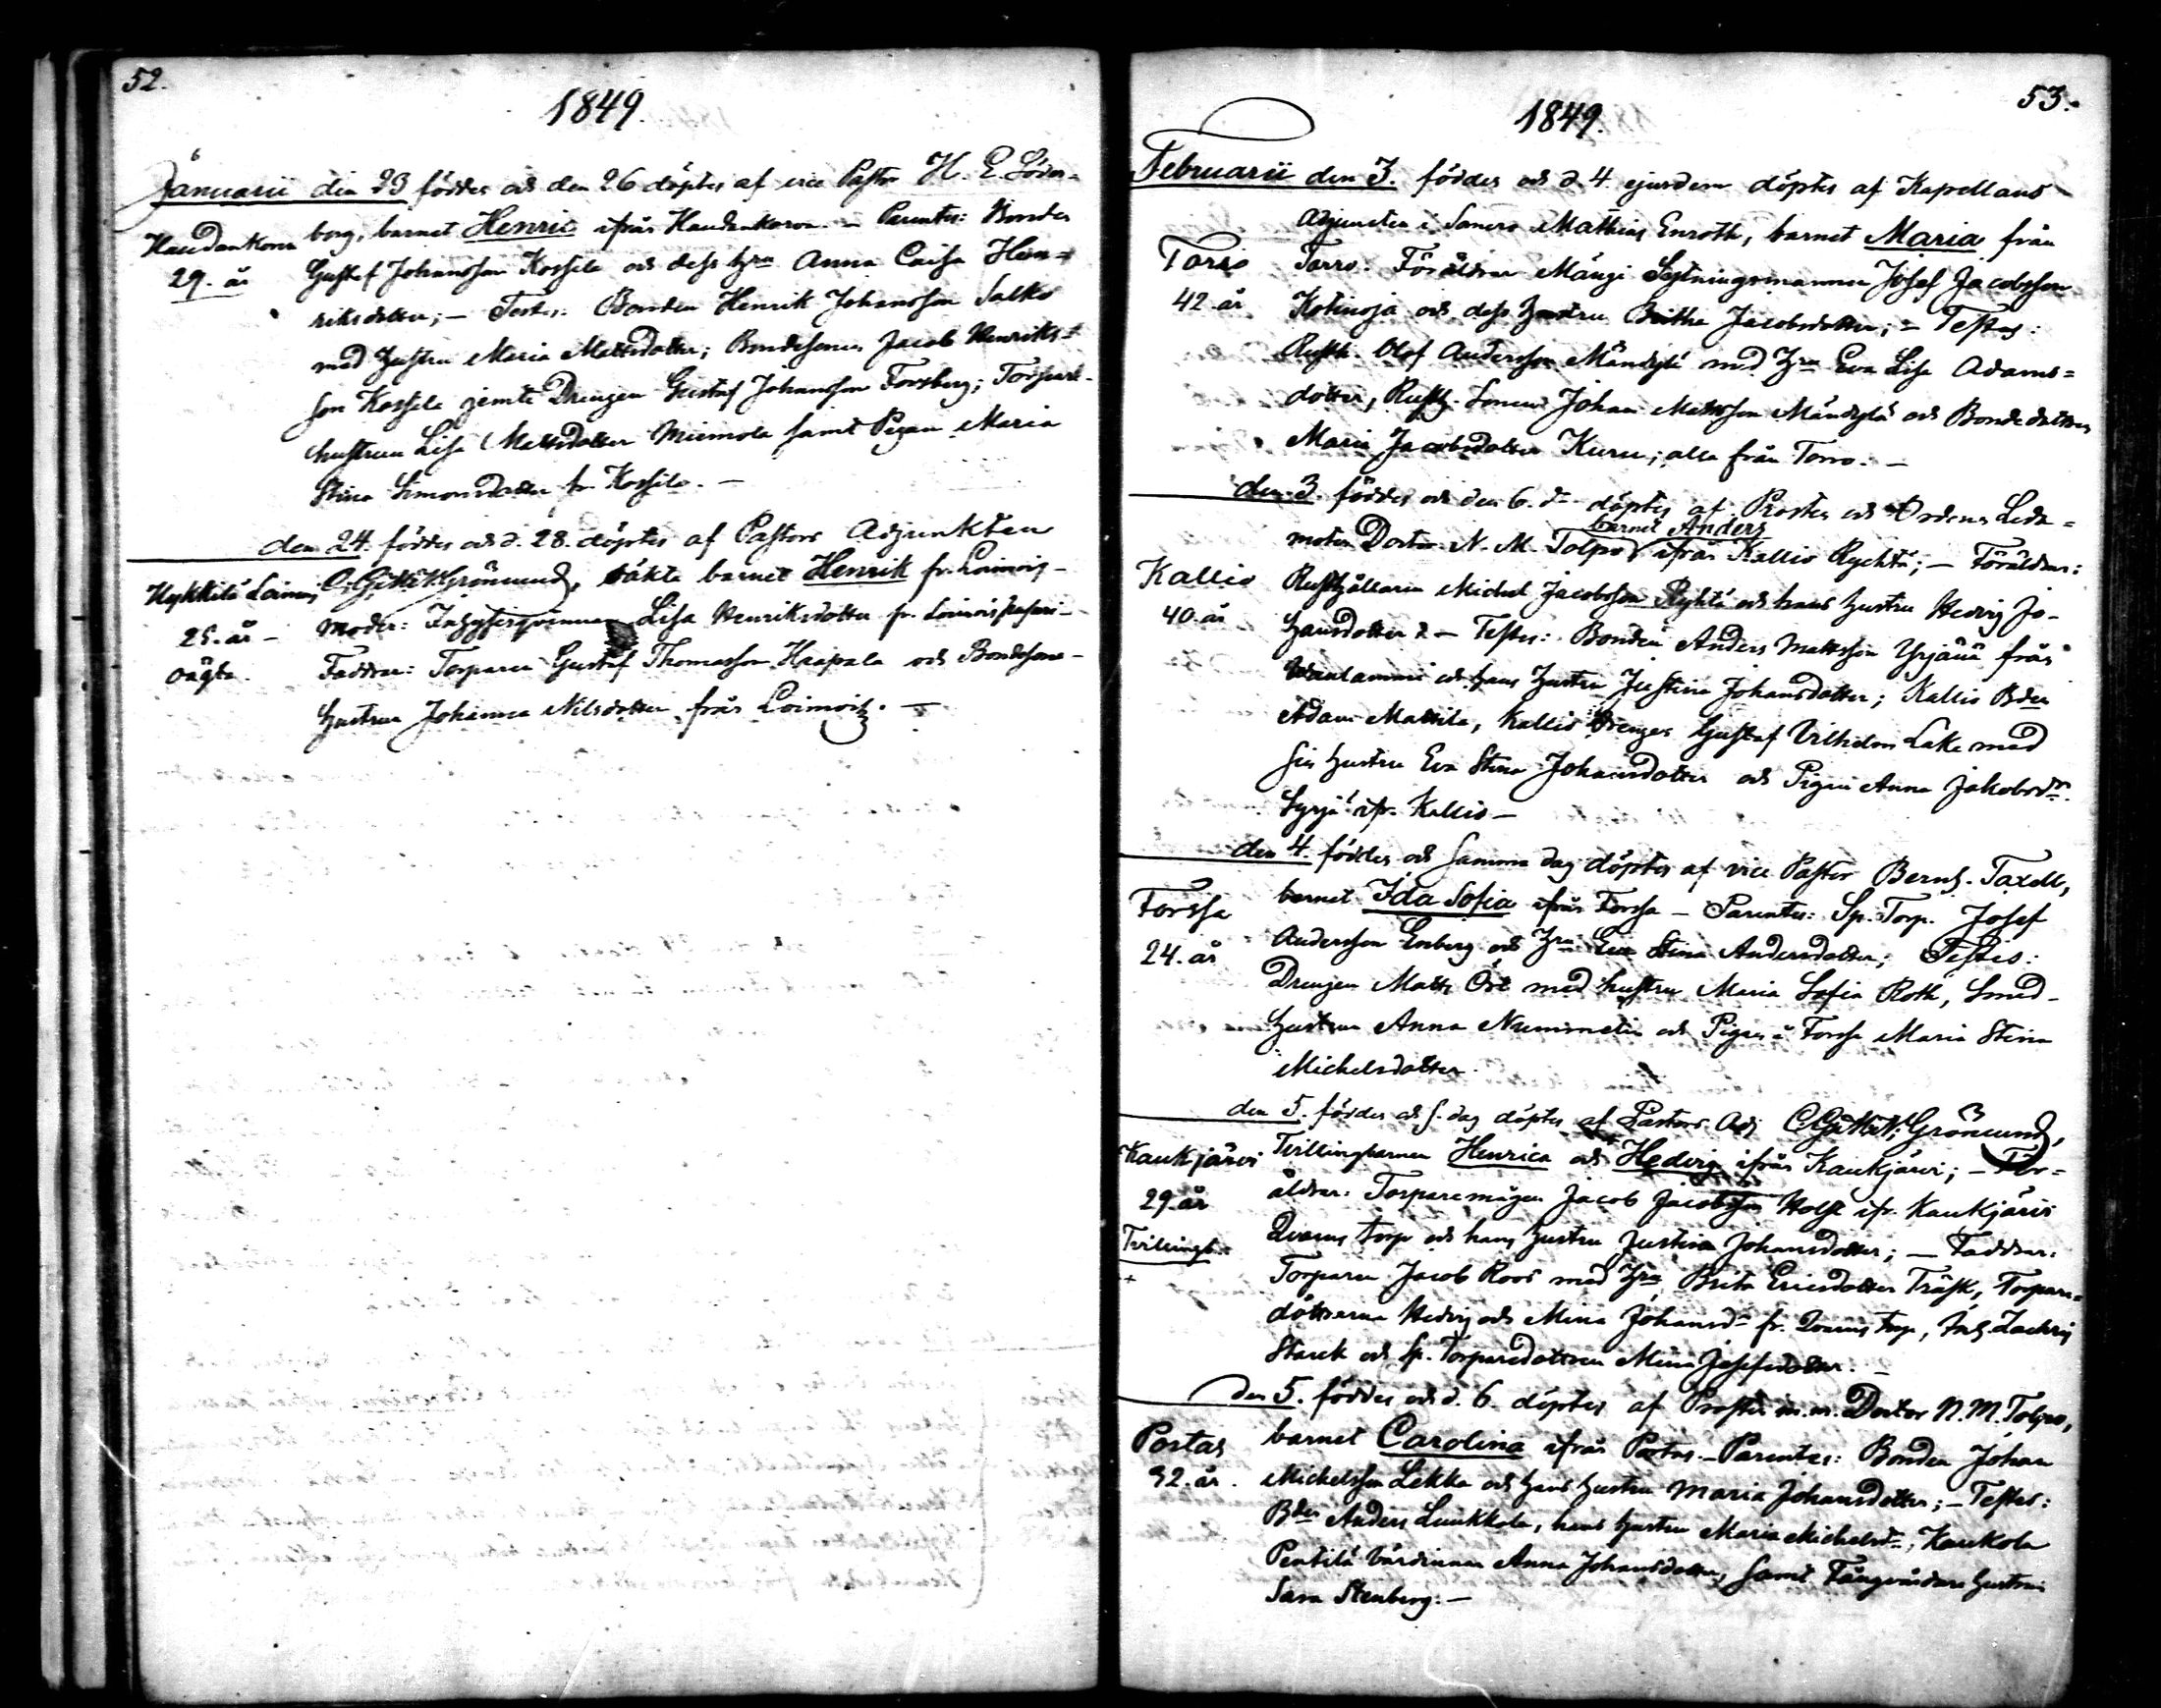 52.
1849.
Januarii den 23 föddes och den 26 döptes af vice Pastor H. E. Söder-
Haudankorva borg, barnet Henric ifrån Haudankorva. – Parentes: Bonden
29. år Gustaf Johansson Kossila och dess Hru Anna Caisa Hen-
riksdotter; – Testes: Bonden Henrik Johansson Salko
med Hustru Maria Mattsdotter; Bondesonen Jacob Henriks-
son Kossila jemte Drengen Gustaf Johansson Forsberg; Torpare-
hustrun Lisa Mattsdotter Miemola samt Pigan Maria
Stina Simonsdotter fr. Kossila. –
den 24. föddes och d. 28. döptes af Pastors Adjunkten
Hykkilä Loimois Grönlund, oäkta barnet Henrik fr. Loimois –
25. år – Moder: Inhyses qvinnan Lisa Henriksdotter fr. Loimois
oägta. Faddrar: Torparen Gustaf Thomasson Haapala och Bondesons-
Hustrun Johanna Nilsdotter från Loimois. –
53.
1849.
Februarii den 3. föddes och d. 4. ejusdem döptes af Kapellans
Adjuncten i Somero Mathias Enroth, barnet Maria från
Torro Torro. Föräldrar Mångi Sextningsmannen Josef Jacobsson
42. år Kotinoja och dess Hustru Britha Jacobsdotter; – Testes:
Rusth. Olof Andersson Mändylä med Hru Eva Lisa Adams-
dotter, Rusth. Sonen Johan Mattsson Mändylä och Bondedottren
Maria Jacobsdotter Kuru; alla från Torro. –
den 3. föddes och den 6. do döptes af Prosten och Ordens Leda-
barnet Anders
moten Doctor N. M. Tolpo ifrån Kallio Rychtä; – Föräldrar:
Kallio Rusthållaren Michel Jacobsson Ryhtä och hans Hustru Hedvig Jo-
40. år hansdotter. – Testes: Bonden Anders Mattsson Yrjänä från
och hans Hustru Justina Johansdotter; Kallio Bden
Adam Mattila, Kallio Drengen Gustaf Vilhelm Lake med
sin Hustru Eva Stina Johansdotter och Pigan Anna Jakobsdr.
Syrjä ifr. Kallio –
den 4. föddes och samma dag döptes af vice Pastor Bernh. Taxell,
Forssa barnet Ida Sofia ifrån Forssa – Parentes: Sp. Torp. Josef
24. år Andersson Enberg och Hru Eva Stina Andersdotter; Testes:
Drengen Matts Ört med hustru Maria Sofia Roth, Smed-
Hustrun Anna Nummelin och Pigan i Forssa Maria Stina
Michelsdotter.
den 5. föddes och s. dag döptes af Pastors Adj Grönlund,
Kaukjärvi Tvillingbarnen Henrica och Hedvig ifrån Kaukjärvi; – För-
29. år äldrar: Torparemågen Jacob Jacobsson Holst ifr. Kaukjärvi
Tvillingb. Qvarns torp och hans Hustru Justina Johansdotter; – Faddrar:
+ Torparen Jacob Roos med Hru Brita Ericsdotter Träsk, Torpare-
döttrarna Hedvig och Mina Johansdr fr. Qvarns torp, Inh. Zachris
Starck och Sp. Torparedottren Mina Josefsdotter. –
den 5. föddes och d. 6. döptes af Prosten m.m. Doctor N. M. Tolpo,
Portas barnet Carolina ifrån Portas. – Parentes: Bonden Johan
32. år. Michelsson Lekka och hans Hustru Maria Johansdotter; – Testes:
Bden Anders Luukkola, hans hustru Maria Michelsdr, Kaukola
Pentilä Värdinnan Anna Johansdotter, samt Fångvårdare Hustrun
Sara Stenberg. –